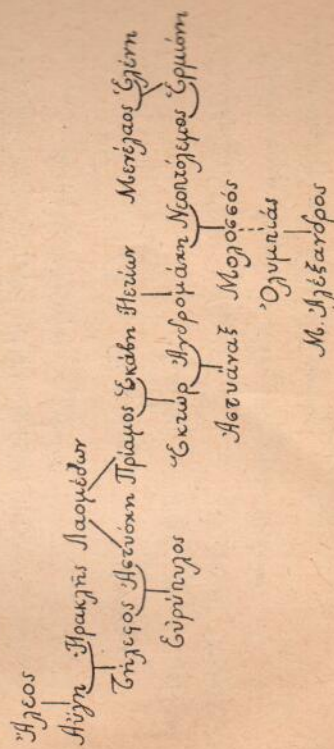 Ἄλεος
Αὔγη Ἡρακλῆς Λαομέδων
Τήλεφος Ἀστυόχη Πρίαμος Ἑκάβη Ἠετίων Μενέλαος Ἑλένη
Εὐρύπυλος Ἕκτωρ Ἀνδρομάχη Νεοπτόλεμος Ἑρμιόνη
Ἀστυάναξ Μολοσσός
Ὀλυμπιάς
Μ. Ἀλέξανδρος